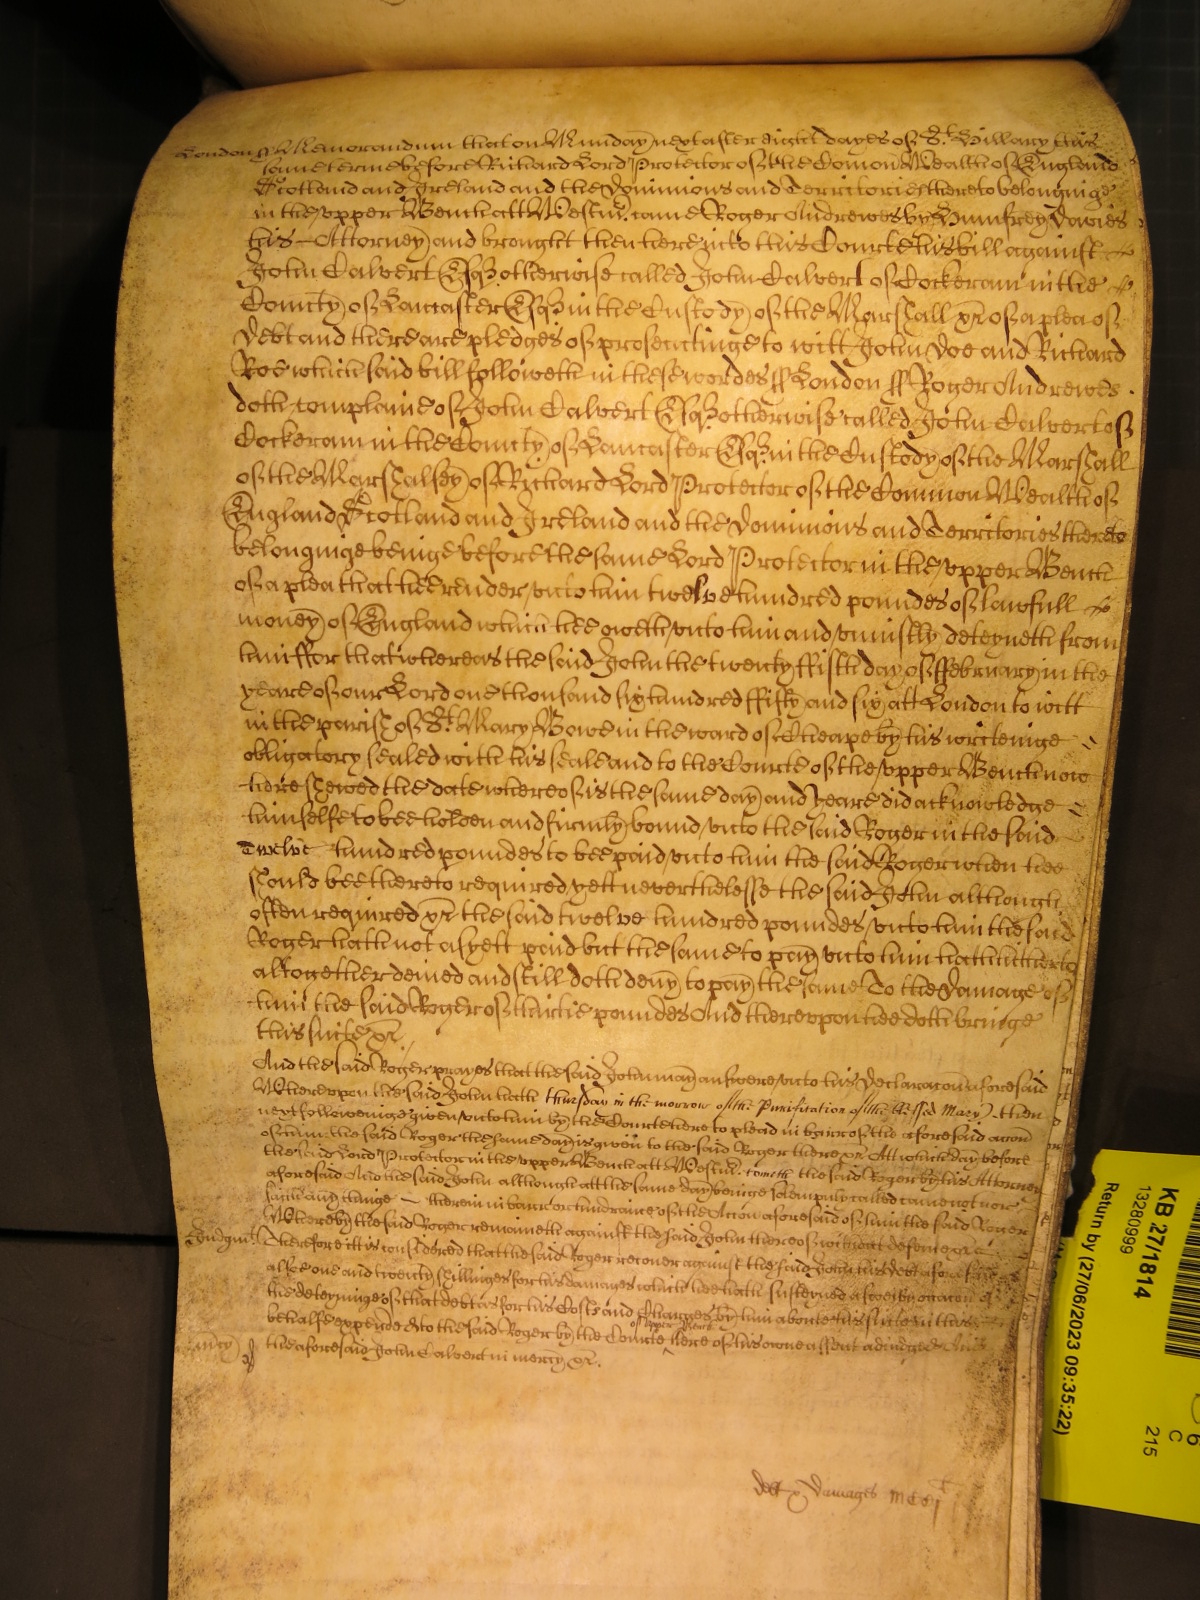 London ss Memorandum that on Munday next after eight dayes of St. Hillary this
same terme before Richard Lord Protector of the Comon Wealth of England
Scotland and Ireland and the Dominions and Territories thereto belonginge
in the upper Bench att Westmr. came Roger Andrewes by Humfrey Davies
his Attorney and brought then here into this Courte his bill against
John Calvert Esqr. otherwise called John Calvert of Cockeram in the
County of Lancaster Esqr in the Custody of the Marshall &c of a plea of
Debt and there are pledges of prosecutinge to witt John Doe and Richard
Roe which said bill followeth in these wordes ss London ss Roger Andrewes
doth complaine of John Calvert Esqr. otherwise called John Calvert of
Cockeram in the County of Lancaster Esqr. in the Custody of the Marshall
of the Marshalsey of Richard Lord Protector of the Common Wealth of
England Scotland and Ireland and the Dominions and Territories thereto
belonginge beinge before the same Lord Protector in the upper Bench
of a plea that hee render unto him twelve hundred poundes of lawfull
money of England which hee oweth unto him and uniustly deteyneth from
him ffor that whereas the said John the twenty ffifth day of ffebruary in the
yeare of our Lord one thousand six hundred ffifty and six att London to witt
in the parish of St. Mary Bowe in the ward of Cheape by his writeinge
obligatory sealed with his seale and to the Courte of the upper Bench now
here shewed the date whereof is the same day and yeare did acknowledge
himselfe to bee holden and firmly bound unto the said Roger in the said
Twelve hundred poundes to bee paid unto him the said Roger when hee
should bee thereto required yett neverthelesse the said John although
often required &c the said twelve hundred poundes unto him the said
Roger hath not as yett paid but the same to pay unto him hath hitherto
altogether denied and still doth deny to pay the same To the Damage of
him the said Roger of thirtie poundes And thereupon hee doth bringe
this suite &c
And the said Roger prayes that the said John may answere unto his Declaracon aforesaid
Whereupon the said John hath thursday in the morrow of the Purification of the blessed Mary then
next followeinge given unto him by the Courte here to plead in barr of the aforesaid accon
of him the said Roger the same day is given to the said Roger here &c Att which day before
the said Lord Protector in the upper Bench att Westmr. cometh the said Roger by his Attorney
aforesaid And the said John although att the same day beinge solemply called came not nor
saith any thinge therein in barr or hindrance of the Accon aforesaid of him the said Roger
Whereby the said Roger remaineth against the said John thereof without defence &c
Judgmt. Therefore itt is considered that the said Roger recover against the said John his Debt aforesaid
alsoe one and twenty shillinges for his damages which hee hath susteyned aswell by occacon of
the deteyninge of that debt as for his Costs and Charges by him about his suite in this
behalfe expended to the said Roger by the Courte of upper Bench here of his owne assent adiudged And
mercy the aforesaid John Calvert in mercy &c.
debt & Damages MCC
KB 27/1814
13280999
Return by (27/06/2023 09:35:22)
6
C
215